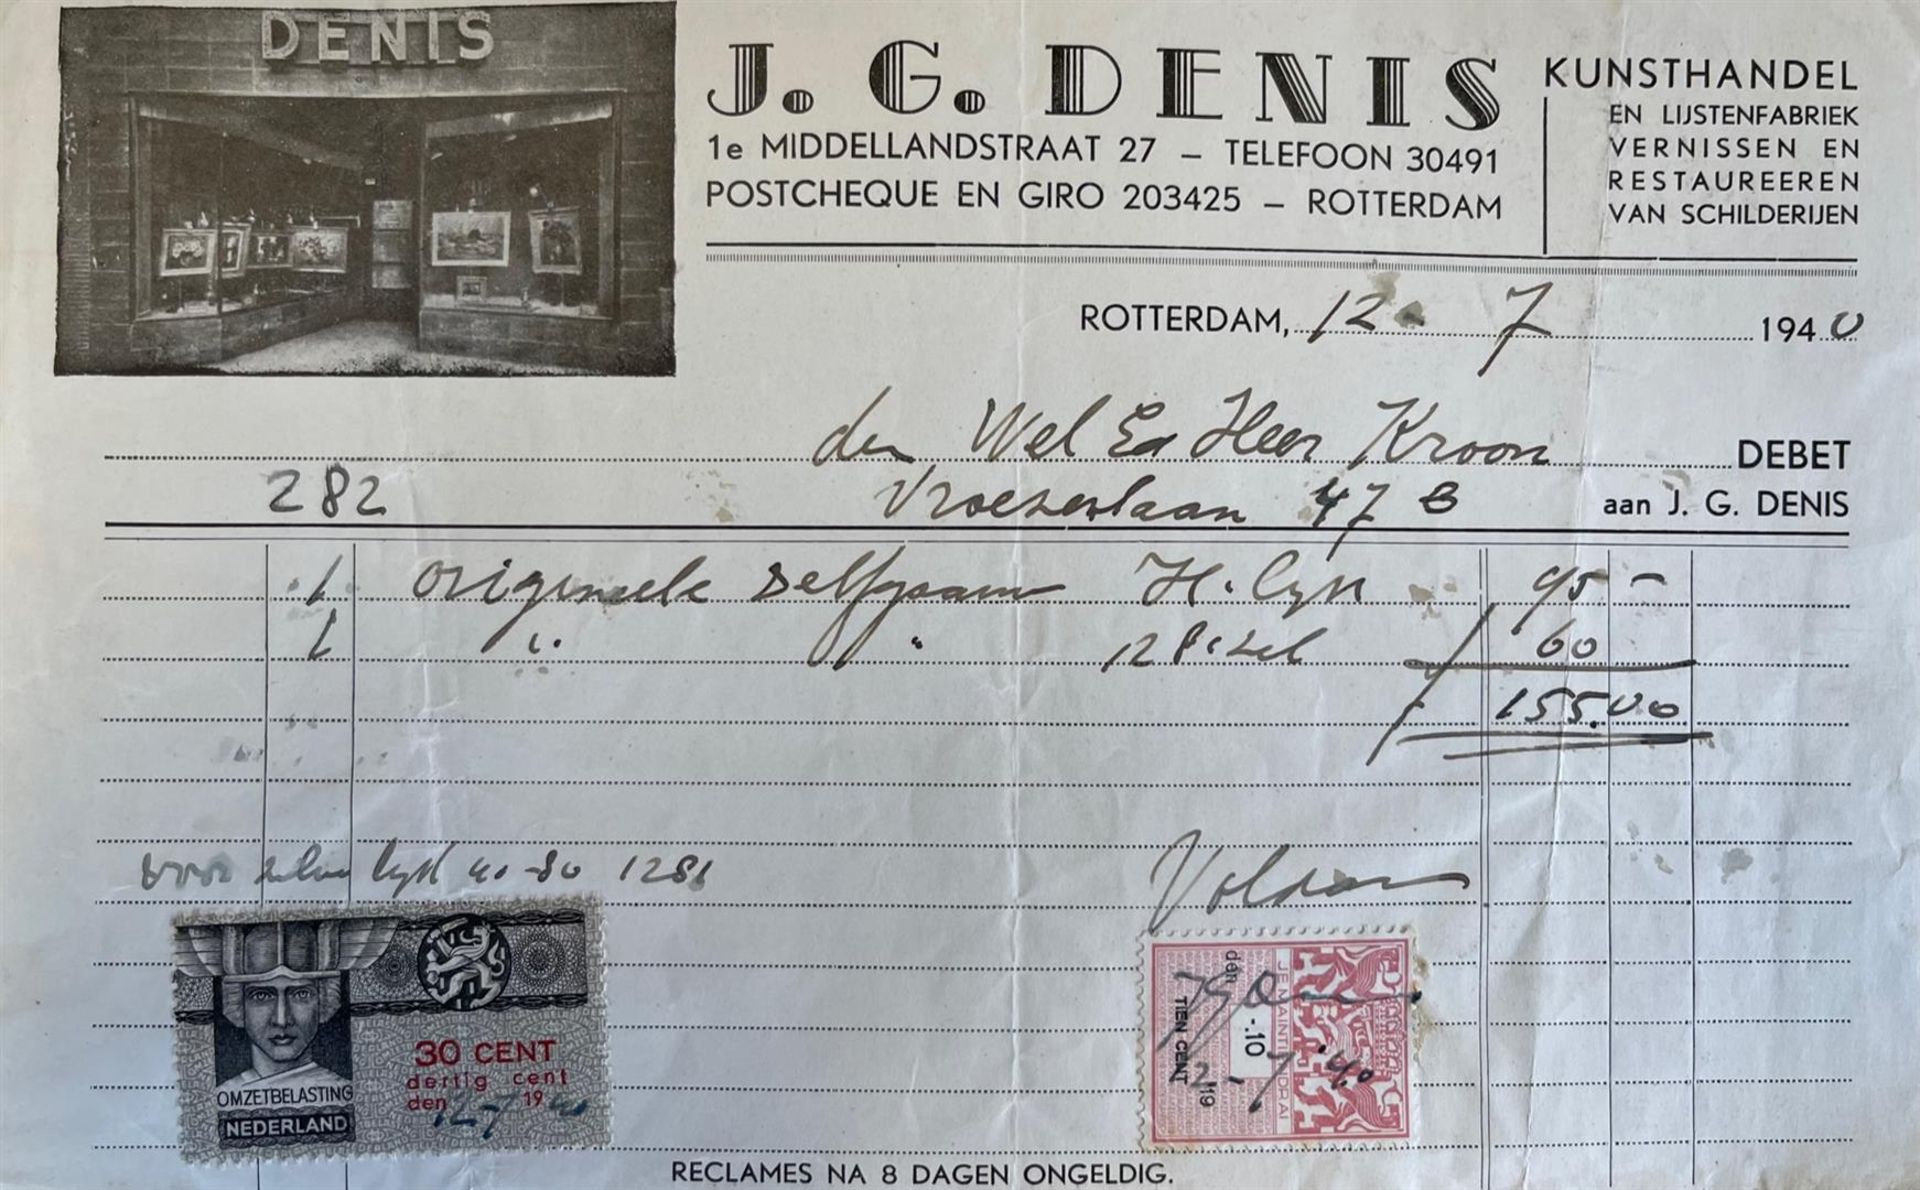 DENIS
J. G. DENIS
1e MIDDELLANDSTRAAT 27 – TELEFOON 30491
POSTCHEQUE EN GIRO 203425 – ROTTERDAM
KUNSTHANDEL
EN LIJSTENFABRIEK
VERNISSEN EN
RESTAUREEREN
VAN SCHILDERIJEN
ROTTERDAM, 12 - 7 1940
den Wel Ed Heer Kroon DEBET
282 Vroesenlaan 47 B aan J. G. DENIS
1 Originele H. 95 –
1 " " 60
155.00
voor lijst 40-80 1281
Voldaan
OMZETBELASTING
NEDERLAND
30 CENT
dertig cent
den 12-7 1940
JE MAINTIENDRAI
den
-.10
TIEN CENT
19
12 - 7 '40
RECLAMES NA 8 DAGEN ONGELDIG.